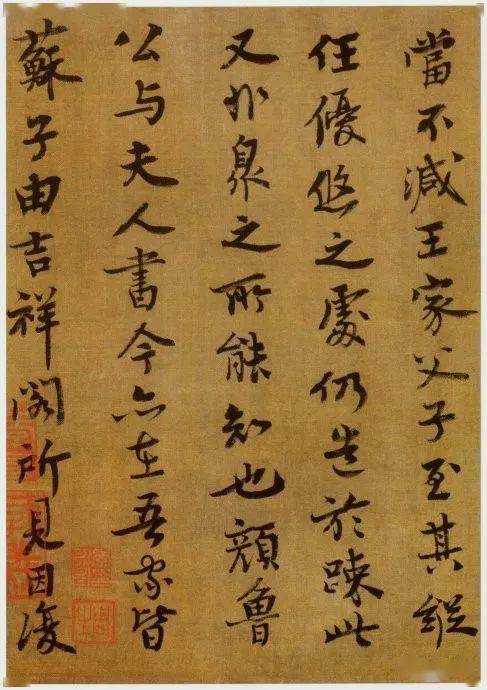 當不減王家父子至其縱
任優悠之處仍造於踈此
又非衆之所能知也顔魯
公与夫人書今亦在吾家皆
蘇子由吉祥閣所見因復